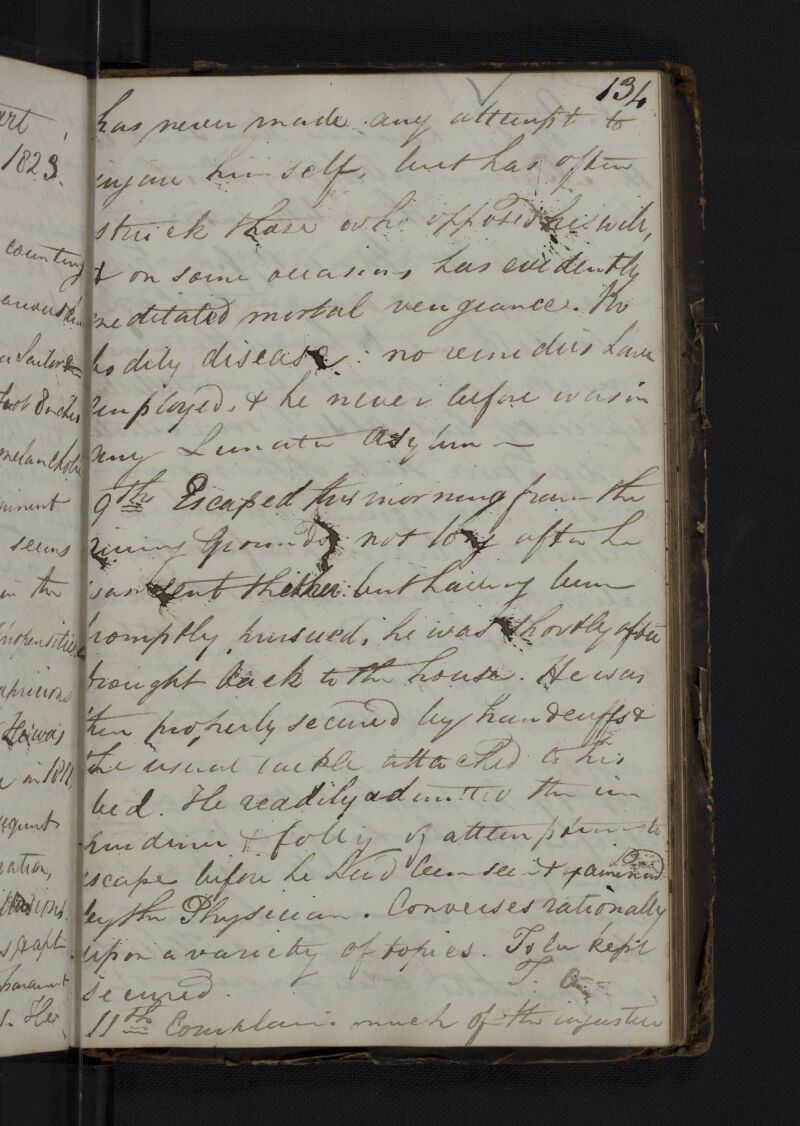 134
has never made any attempt to
injure himself, but has often
struck those who opposed his will,
& on some occasions has evidently
meditated mortal vengeance. No
bodily disease: no remedies have
employed, & he never before was in
any Lunatic Asylum —
9th Escaped this morning from the
Airing Grounds, not long after he
was sent thither but having been
promptly pursued, he was shortly after
brought back to the house. He was
then properly secured by handcuffs &
the usual tackle attached to his
bed. He readily admitted the im
prudence & folly of attempting to
escape before he had been seen & examined
by the Physician. Converses rationally
upon a variety of topics. To be kept
secured.
11th Complains much of the injustice
art
1823.
counting
a Sailor &
melancholic
seems
in the
propensities
capricious
He was
in 181
ration,
s. He